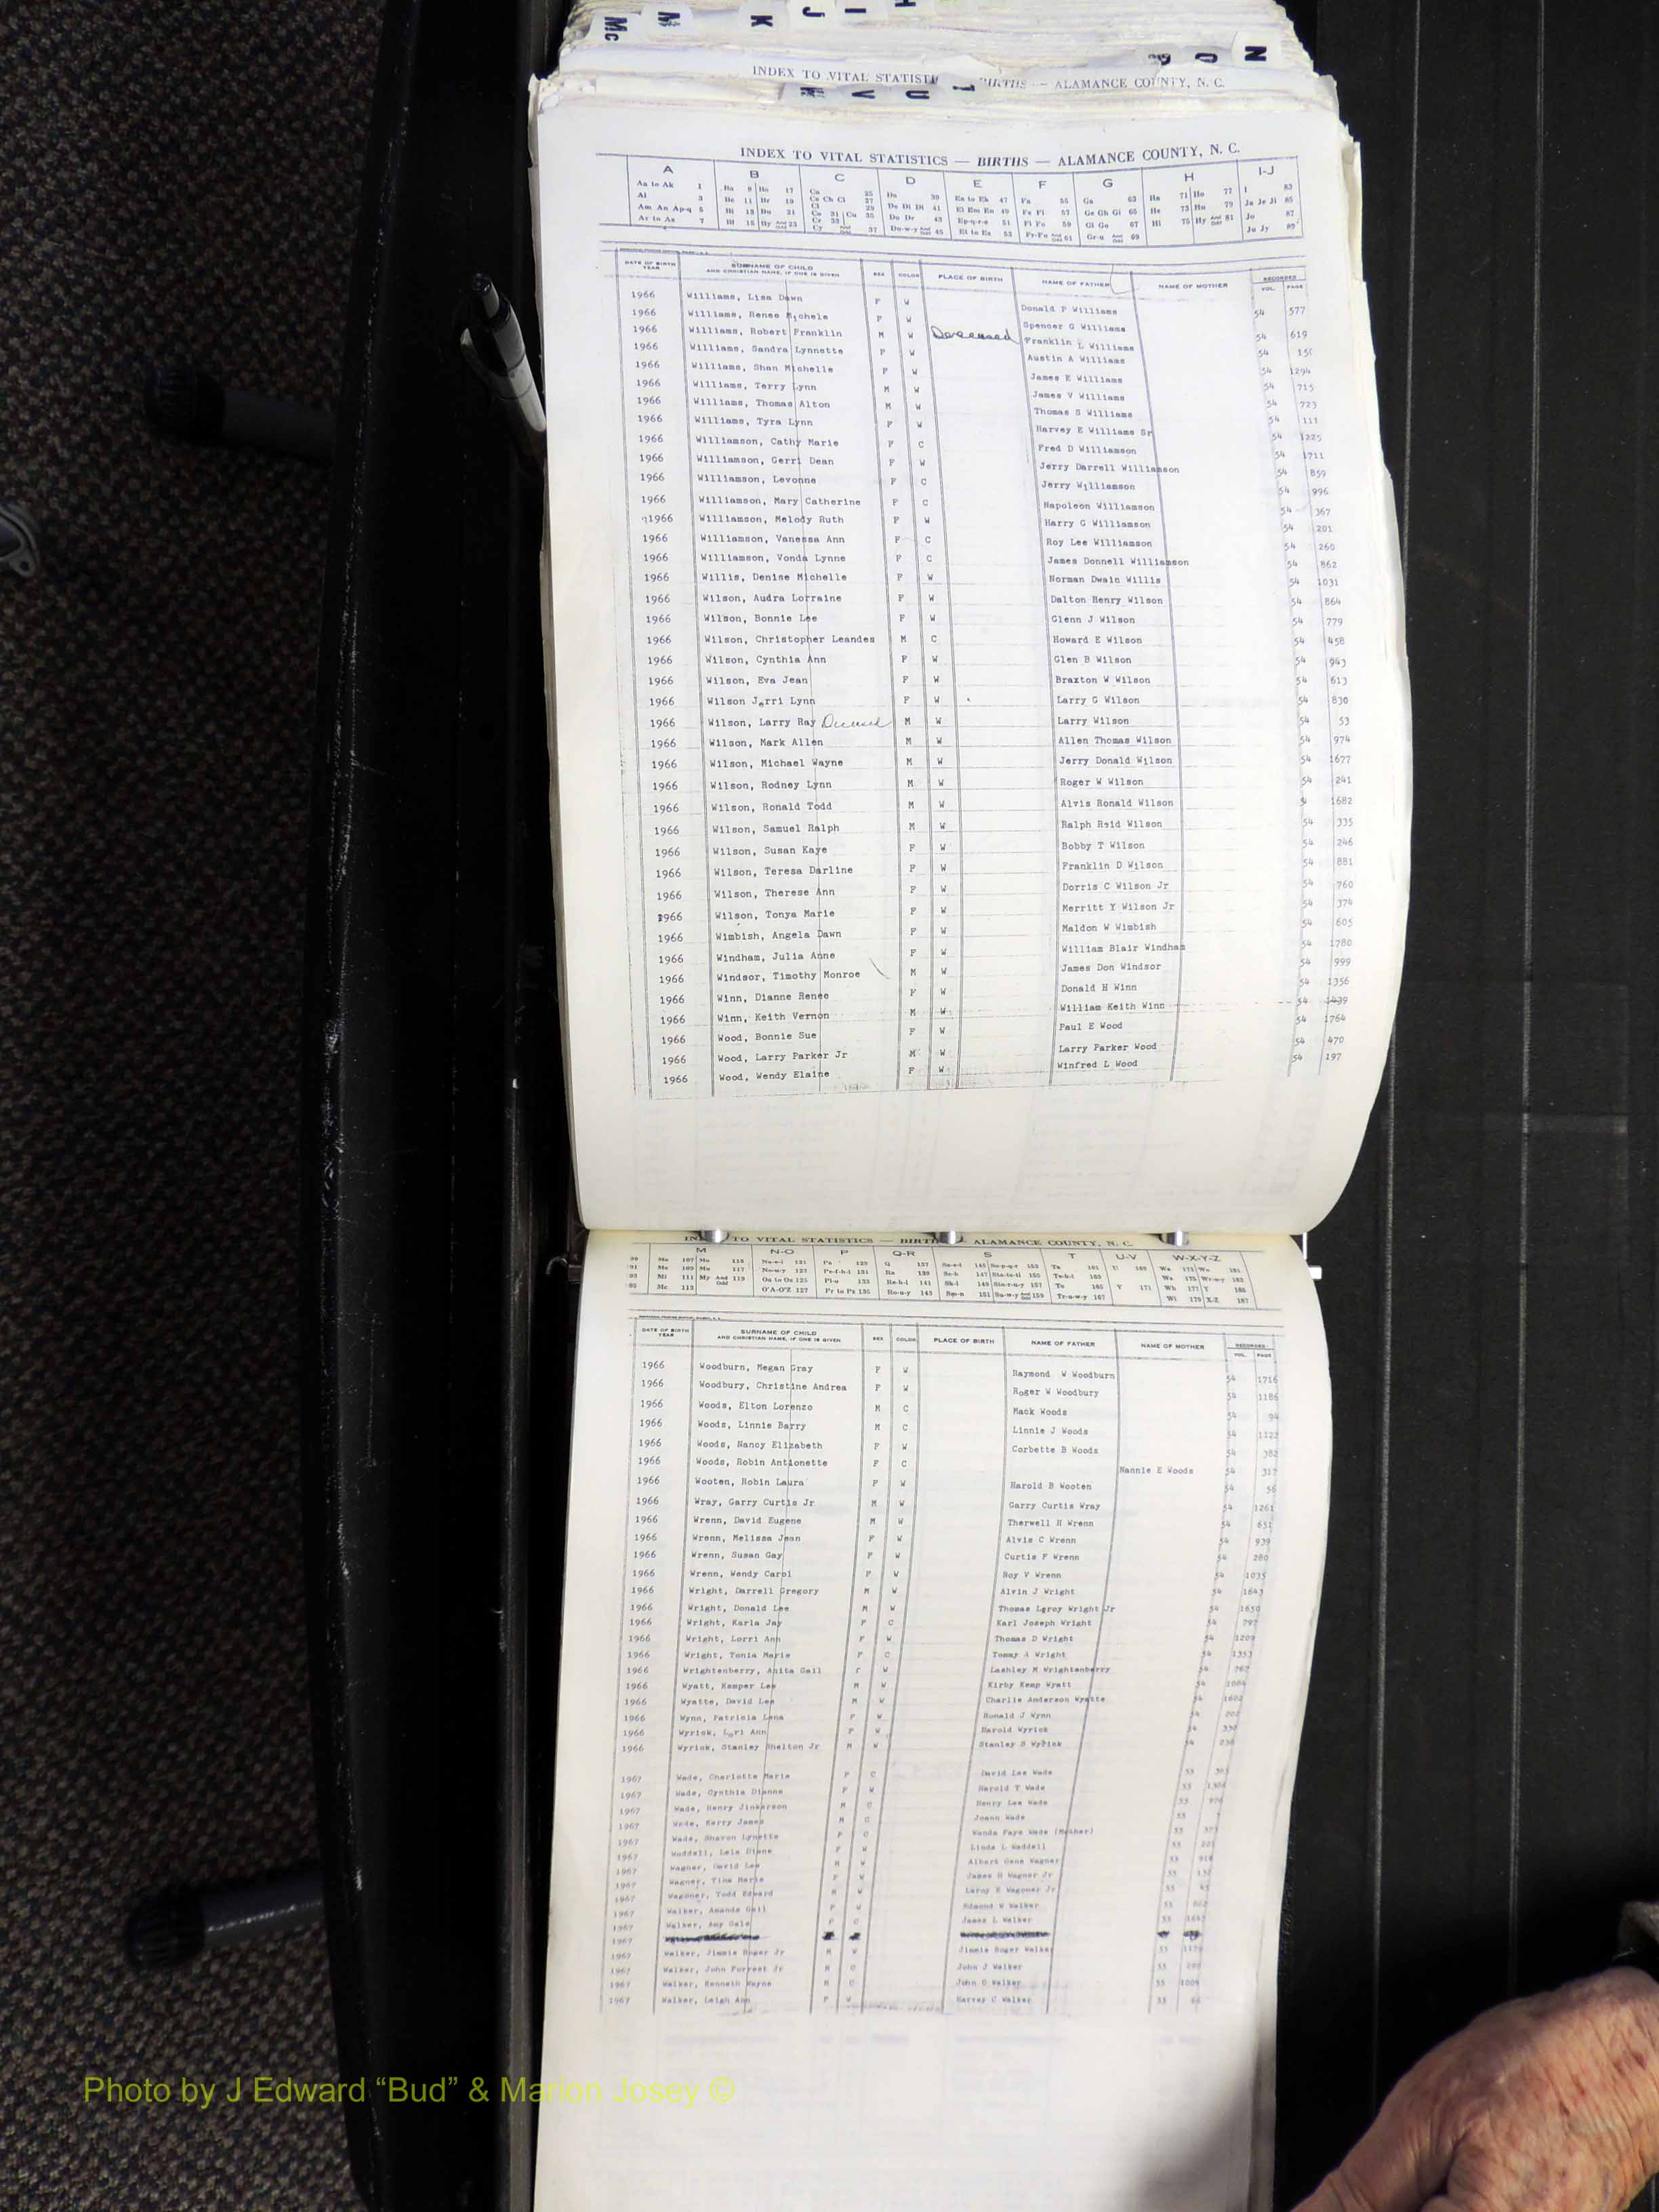 Mc M K J I H
P O N
INDEX TO VITAL STATISTI BIRTHS — ALAMANCE COUNTY, N. C.
W V U T
INDEX TO VITAL STATISTICS — BIRTHS — ALAMANCE COUNTY, N. C.
A B C D E F G H I-J
Aa to Ak 1 Ba 9 Bo 17 Ca 25 Da 39 Ea to Ek 47 Fa 55 Ga 63 Ha 71 Ho 77 I 83
Al 3 Be 11 Br 19 Ce Ch Ci 27 De Di Dl 41 El Em En 49 Fe Fi 57 Ge Gh Gi 65 He 73 Hu 79 Ja Je Ji 85
Am An Ap-q 5 Bi 13 Bu 21 Cl 29 Do Dr 43 Ep-q-r-s 51 Fl Fo 59 Gl Go 67 Hi 75 Hy And Odd 81 Jo 87
Ar to Az 7 Bl 15 By And Odd 23 Co 31 Cu 35 Du-w-y And Odd 45 Et to Ez 53 Fr-Fu And Odd 61 Gr-u And Odd 69 Ju Jy 89
Cr 33 Cy And Odd 37
DATE OF BIRTH YEAR SURNAME OF CHILD AND CHRISTIAN NAME, IF ONE IS GIVEN SEX COLOR PLACE OF BIRTH NAME OF FATHER NAME OF MOTHER RECORDED VOL. PAGE
1966 Williams, Lisa Dawn F W Donald P Williams 54 577
1966 Williams, Renee Michele F W Spencer G Williams 54 619
1966 Williams, Robert Franklin M W Deceased Franklin L Williams 54
1966 Williams, Sandra Lynnette F W Austin A Williams 54 1294
1966 Williams, Shan Michelle F W James E Williams 54 715
1966 Williams, Terry Lynn M W James V Williams 54 723
1966 Williams, Thomas Alton M W Thomas S Williams 54 111
1966 Williams, Tyra Lynn F W Harvey E Williams Sr 54 1225
1966 Williamson, Cathy Marie F C Fred D Williamson 54 1711
1966 Williamson, Gerri Dean F W Jerry Darrell Williamson 54 859
1966 Williamson, Levonne F C Jerry Williamson 54 996
1966 Williamson, Mary Catherine F C Napoleon Williamson 54 367
1966 Williamson, Melody Ruth F W Harry G Williamson 54 201
1966 Williamson, Vanessa Ann F C Roy Lee Williamson 54 260
1966 Williamson, Vonda Lynne F C James Donnell Williamson 54 862
1966 Willis, Denise Michelle F W Norman Dwain Willis 54 1031
1966 Wilson, Audra Lorraine F W Dalton Henry Wilson 54 864
1966 Wilson, Bonnie Lee F W Glenn J Wilson 54 779
1966 Wilson, Christopher Leandes M C Howard E Wilson 54 458
1966 Wilson, Cynthia Ann F W Glen B Wilson 54 943
1966 Wilson, Eva Jean F W Braxton W Wilson 54 613
1966 Wilson Jerri Lynn F W Larry G Wilson 54 830
1966 Wilson, Larry Ray Deceased M W Larry Wilson 54 53
1966 Wilson, Mark Allen M W Allen Thomas Wilson 54 974
1966 Wilson, Michael Wayne M W Jerry Donald Wilson 54 1677
1966 Wilson, Rodney Lynn M W Roger W Wilson 54 241
1966 Wilson, Ronald Todd M W Alvis Ronald Wilson 1682
1966 Wilson, Samuel Ralph M W Ralph Reid Wilson 54 335
1966 Wilson, Susan Kaye F W Bobby T Wilson 54 246
1966 Wilson, Teresa Darline F W Franklin D Wilson 54 881
1966 Wilson, Therese Ann F W Dorris C Wilson Jr 54 760
1966 Wilson, Tonya Marie F W Merritt Y Wilson Jr 54 374
1966 Wimbish, Angela Dawn F W Maldon W Wimbish 54 605
1966 Windham, Julia Anne F W William Blair Windham 54 1780
1966 Windsor, Timothy Monroe M W James Don Windsor 54 999
1966 Winn, Dianne Renee F W Donald H Winn 54 1356
1966 Winn, Keith Vernon M W William Keith Winn 54 1439
1966 Wood, Bonnie Sue F W Paul E Wood 54 1764
1966 Wood, Larry Parker Jr M W Larry Parker Wood 54 470
1966 Wood, Wendy Elaine F W Winfred L Wood 54 197
INDEX TO VITAL STATISTICS — BIRTHS ALAMANCE COUNTY, N. C.
M N-O P Q-R S T U-V W-X-Y-Z
DATE OF BIRTH YEAR SURNAME OF CHILD AND CHRISTIAN NAME, IF ONE IS GIVEN SEX COLOR PLACE OF BIRTH NAME OF FATHER NAME OF MOTHER RECORDED VOL. PAGE
1966 Woodburn, Megan Gray F W Raymond W Woodburn 54 1716
1966 Woodbury, Christine Andrea F W Roger W Woodbury 54 1186
1966 Woods, Elton Lorenzo M C Mack Woods 54 94
1966 Woods, Linnie Barry M C Linnie J Woods 54 1122
1966 Woods, Nancy Elizabeth F W Corbette B Woods 54 382
1966 Woods, Robin Antionette F C Nannie E Woods 54 317
1966 Wooten, Robin Laura F W Harold B Wooten 54 56
1966 Wray, Garry Curtis Jr M W Garry Curtis Wray 54 1261
1966 Wrenn, David Eugene M W Therwell H Wrenn 54 651
1966 Wrenn, Melissa Jean F W Alvis C Wrenn 54 939
1966 Wrenn, Susan Gay F W Curtis F Wrenn 54 280
1966 Wrenn, Wendy Carol F W Roy V Wrenn 54 1035
1966 Wright, Darrell Gregory M W Alvin J Wright 54 1643
1966 Wright, Donald Lee M W Thomas Leroy Wright Jr 54 1650
1966 Wright, Karla Jay F C Karl Joseph Wright 54 797
1966 Wright, Lorri Ann F W Thomas D Wright 54 1209
1966 Wright, Tonia Marie F C Tommy A Wright 54 1353
1966 Wrightenberry, Anita Gail F W Lashley M Wrightenberry 54 767
1966 Wyatt, Kemper Lee M W Kirby Kemp Wyatt 54
1966 Wyatte, David Lee M W Charlie Anderson Wyatte 54
1966 Wynn, Patricia Lena F W Ronald J Wynn 54 202
1966 Wyrick, Lori Ann F W Harold Wyrick 54 330
1966 Wyrick, Stanley Shelton Jr M W Stanley S Wyrick 54
1967 Wade, Charlotte Marie F C David Lee Wade 55
1967 Wade, Cynthia Dianne F W Harold T Wade 55
1967 Wade, Henry Jinkerson M C Henry Lee Wade 55
1967 Wade, Kerry James M C Joann Wade 55
1967 Wade, Sharon Lynette F C Wanda Faye Wade (Mother) 55 373
1967 Waddell, Lela Diane F W Linda L Waddell 55
1967 Wagner, David Lee M W Albert Gene Wagner 55
1967 Wagner, Tina Marie F W James H Wagner Jr 55
1967 Wagoner, Todd Edward M W Leroy E Wagoner Jr 55
1967 Walker, Amanda Gail F W Edmond W Walker 55
1967 Walker, Amy Gale F C James L Walker 55
1967
1967 Walker, Jimmie Roger Jr M W Jimmie Roger Walker 55
1967 Walker, John Forrest Jr M C John J Walker 55
1967 Walker, Kenneth Wayne M C John O Walker 55
1967 Walker, Leigh Ann F W Harvey C Walker 55
Photo by J Edward “Bud” & Marion Josey ©